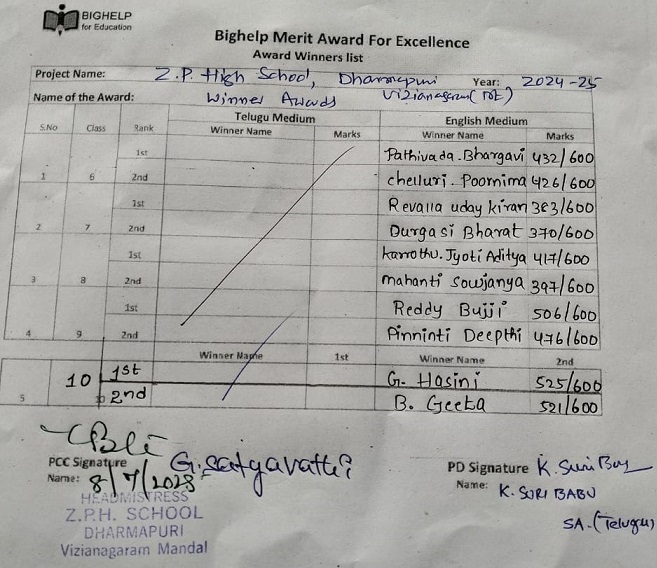 BIGHELP
for Education
Bighelp Merit Award For Excellence
Award Winners list
Project Name: Z.P. High School, Dharmapuri Year: 2024-25
Name of the Award: Winner Awards Vizianagaram
Telugu Medium English Medium
S.No Class Rank Winner Name Marks Winner Name Marks
1st Pathivada. Bhargavi 432/600
1 6 2nd chelluri. Poornima 426/600
1st Revalla uday kiran 383/600
2 7 2nd Durgasi Bharat 370/600
1st karrothu. Jyoti Aditya 417/600
3 8 2nd mahanti Sowjanya 397/600
1st Reddy Bujji 506/600
4 9 2nd Pinninti Deepthi 476/600
Winner Name 1st Winner Name 2nd
5 10 1st G. Hasini 525/600
2nd B. Geeta 521/600
PCC Signature G. Satyavathi
Name: 8/7/2025
PD Signature K. Suri Babu
Name: K. SURI BABU
SA.(Telugu)
HEADMISTRESS
Z.P.H. SCHOOL
DHARMAPURI
Vizianagaram Mandal